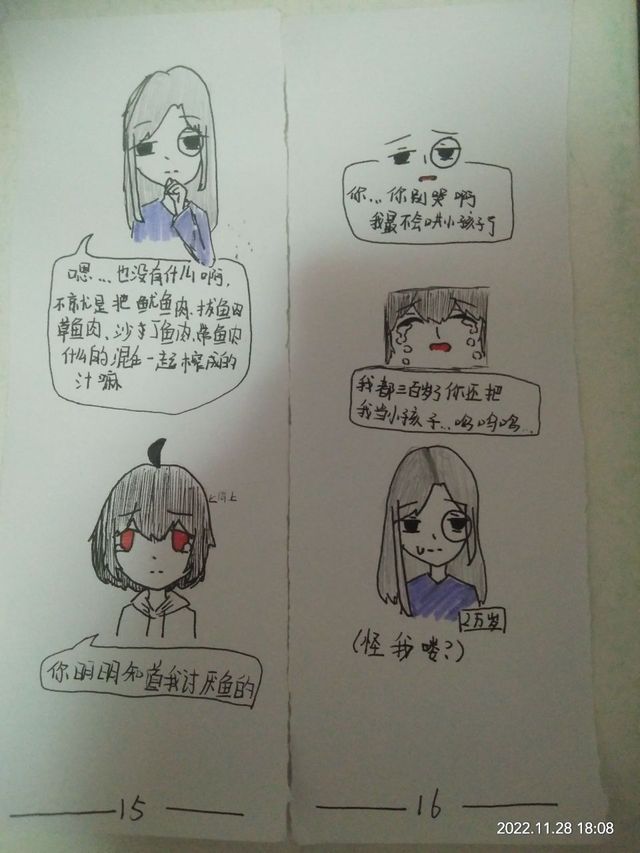 嗯...也没有什么啊,
不就是把鱿鱼肉、拔鱼肉
草鱼肉、沙丁鱼肉、带鱼肉
什么的混在一起榨成的
汁嘛
你明明知道我讨厌鱼的
15
你...你别哭啊
我最不会哄小孩子了
我都三百岁了你还把
我当小孩子...呜呜呜...
2万岁
(怪我喽?)
16
2022.11.28 18:08